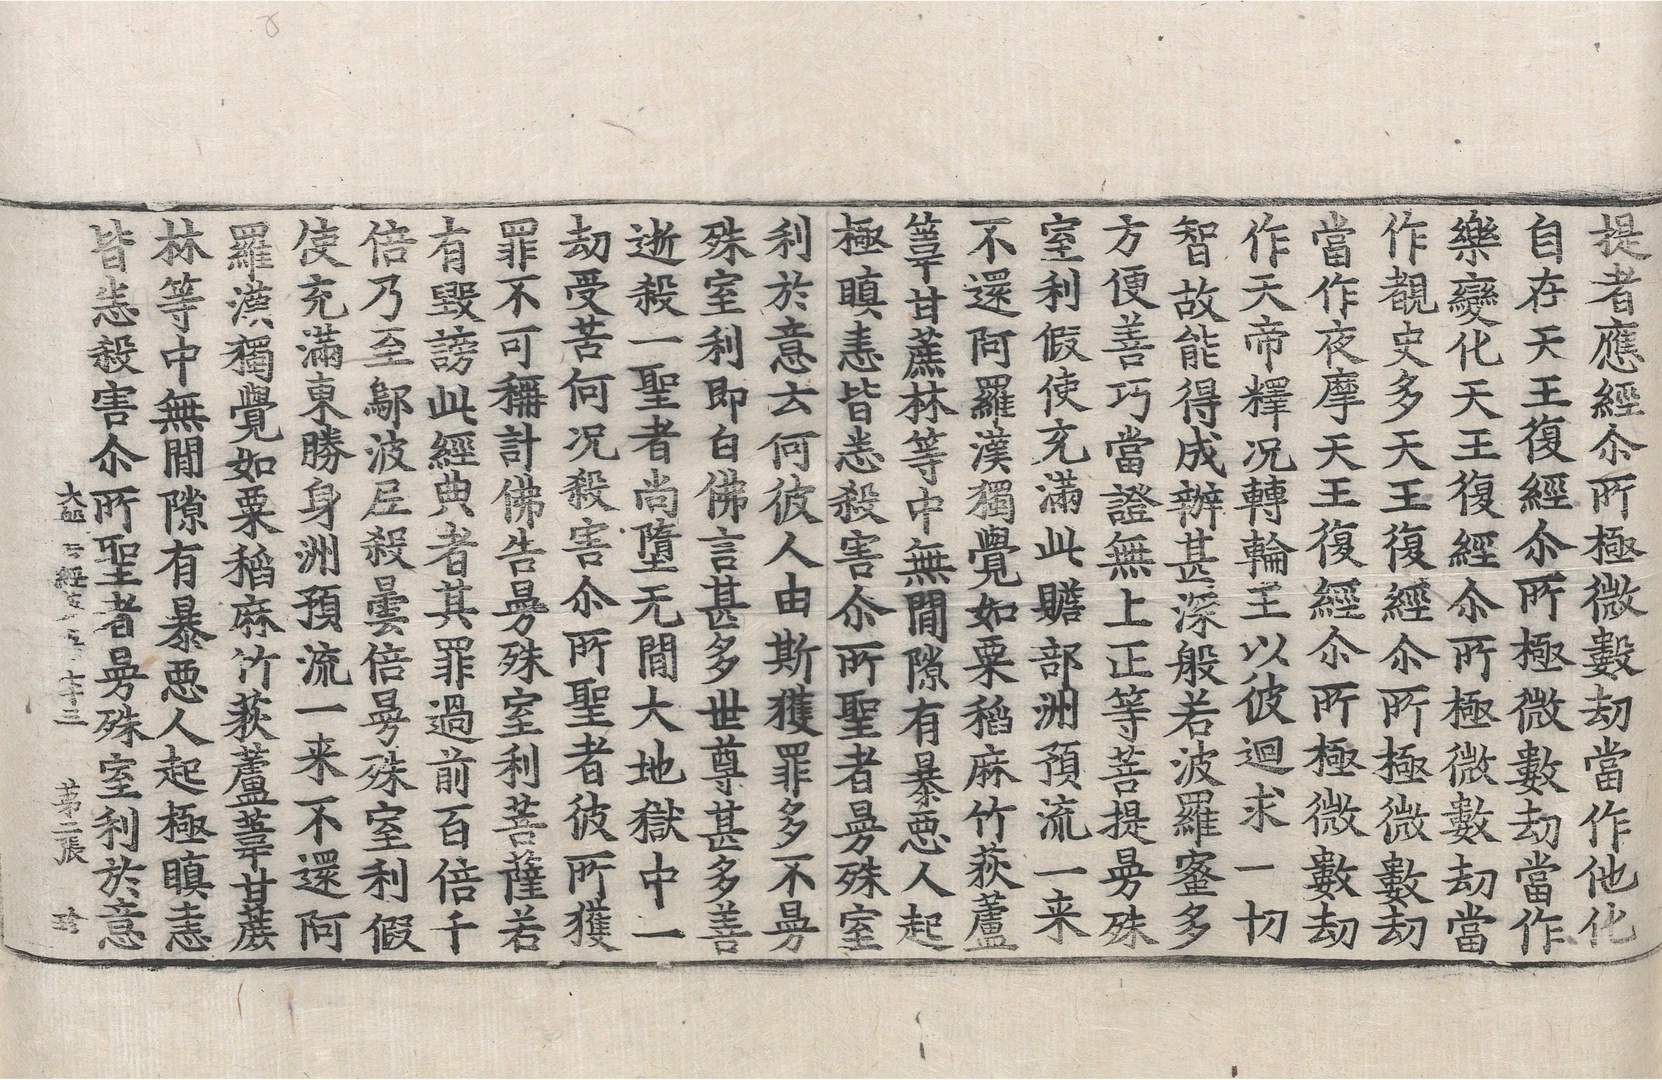 提者應經尒所極微數劫當作他化
自在天王復經尒所極微數劫當作
樂變化天王復經尒所極微數劫當
作覩史多天王復經尒所極微數劫
當作夜摩天王復經尒所極微數劫
作天帝釋况轉輪王以彼迴求一切
智故能得成辦甚深般若波羅蜜多
方便善巧當證無上正等菩提曼殊
室利假使充滿此贍部洲預流一来
不還阿羅漢獨覺如粟稻麻竹荻蘆
葦甘蔗林等中無間隙有暴惡人起
極瞋恚皆悉殺害尒所聖者曼殊室
利於意云何彼人由斯獲罪多不曼
殊室利即白佛言甚多世尊甚多善
逝殺一聖者尚墮无間大地獄中一
劫受苦何况殺害尒所聖者彼所獲
罪不可稱計佛告曼殊室利菩薩若
有毀謗此經典者其罪過前百倍千
倍乃至鄔波尼殺曇倍曼殊室利假
使充滿東勝身洲預流一来不還阿
羅漢獨覺如粟稻麻竹荻蘆葦甘蔗
林等中無間隙有暴惡人起極瞋恚
皆悉殺害尒所聖者曼殊室利於意
第二張